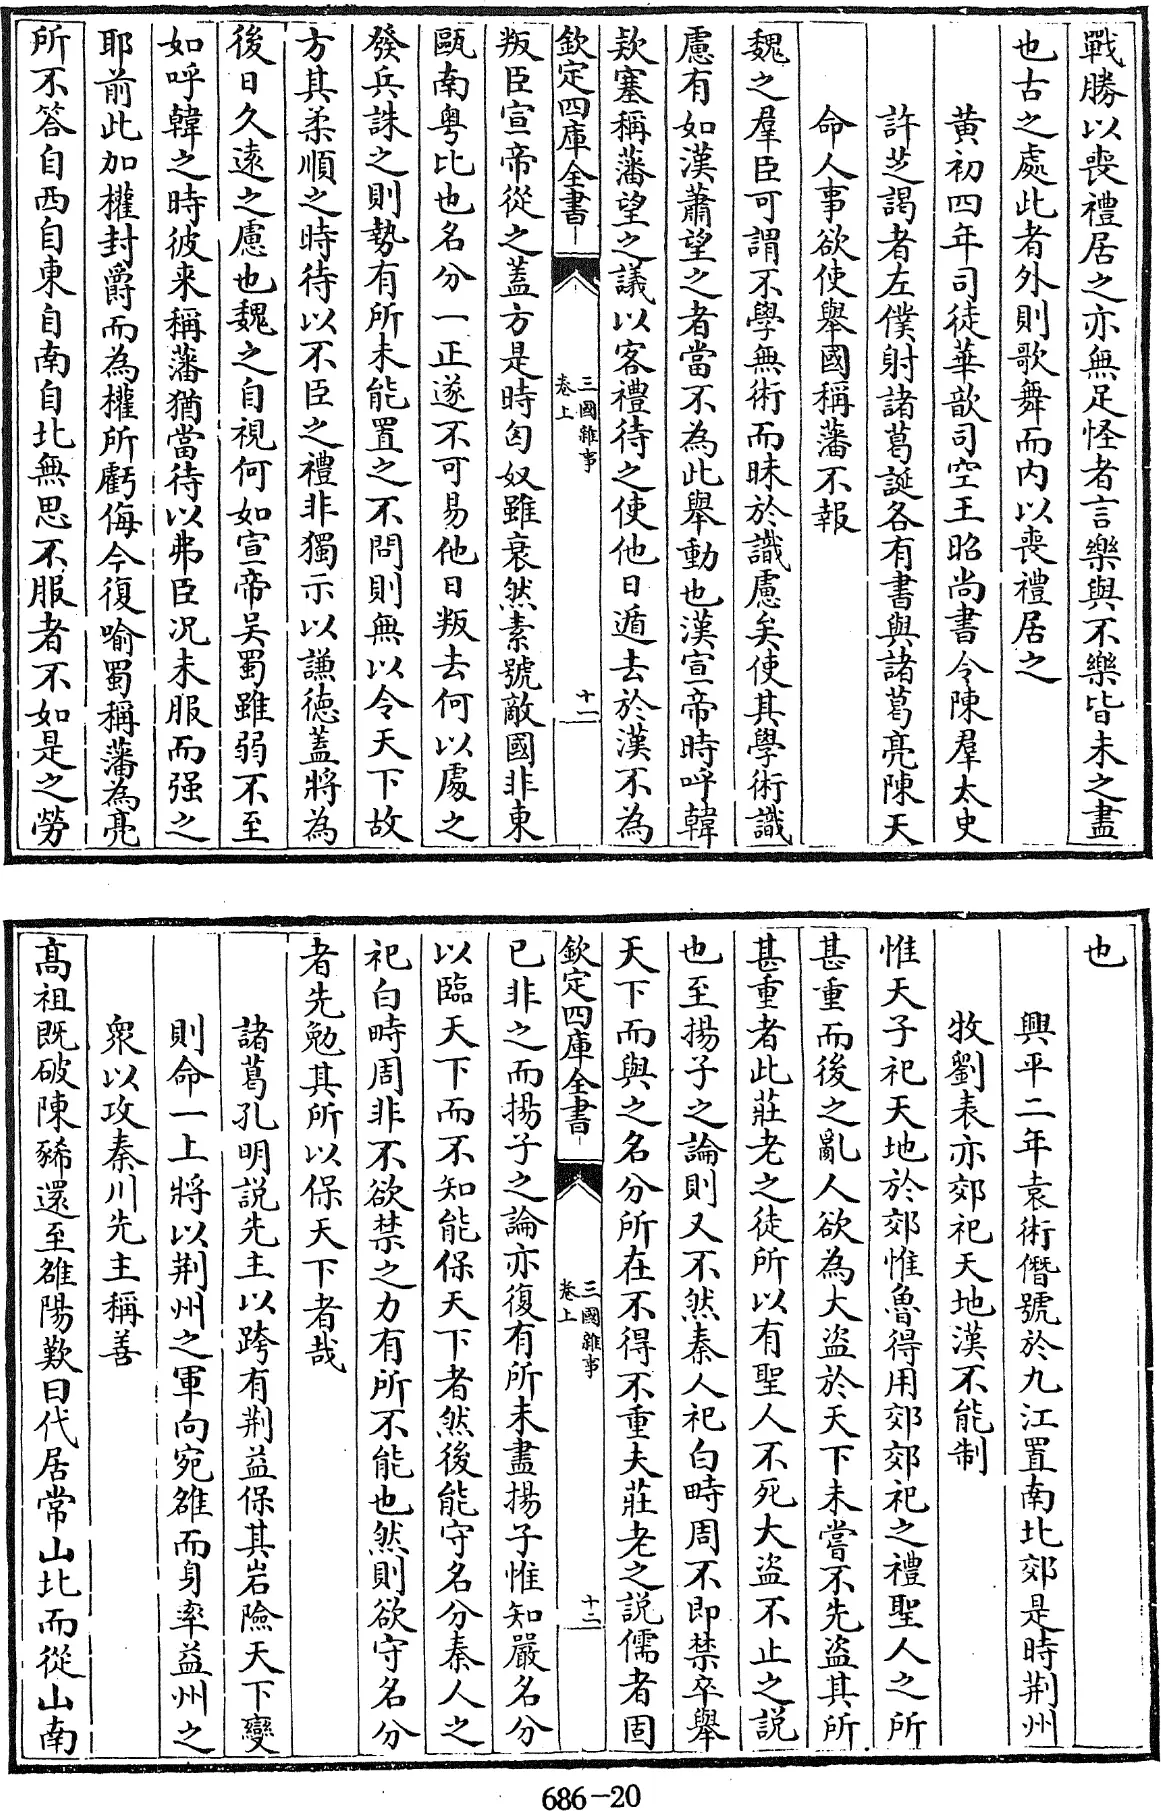 戰勝以喪禮居之亦無足怪者言樂與不樂皆未之盡
也古之處此者外則歌舞而内以喪禮居之
黄初四年司徒華歆司空王昭尚書令陳羣太史
許芝謁者左僕射諸葛誕各有書與諸葛亮陳天
命人事欲使舉國稱藩不報
魏之羣臣可謂不學無術而昧於識慮矣使其學術識
慮有如漢蕭望之者當不為此舉動也漢宣帝時呼韓
欵塞稱藩望之議以客禮待之使他日遁去於漢不為
欽定四庫全書
三國雜事
卷上
十一
叛臣宣帝從之蓋方是時匈奴雖衰然素號敵國非東
甌南粤比也名分一正遂不可易他日叛去何以處之
發兵誅之則勢有所未能置之不問則無以令天下故
方其柔順之時待以不臣之禮非獨示以謙徳蓋將為
後日久遠之慮也魏之自視何如宣帝吴蜀雖弱不至
如呼韓之時彼来稱藩猶當待以弗臣况未服而强之
耶前此加權封爵而為權所虧侮今復喻蜀稱藩為亮
所不答自西自東自南自北無思不服者不如是之勞
也
興平二年袁術僭號於九江置南北郊是時荆州
牧劉表亦郊祀天地漢不能制
惟天子祀天地於郊惟魯得用郊郊祀之禮聖人之所
甚重而後之亂人欲為大盗於天下未嘗不先盗其所
甚重者此莊老之徒所以有聖人不死大盗不止之説
也至揚子之論則又不然秦人祀白畤周不即禁卒舉
天下而與之名分所在不得不重夫莊老之説儒者固
欽定四庫全書
三國雜事
卷上
十二
已非之而揚子之論亦復有所未盡揚子惟知嚴名分
以臨天下而不知能保天下者然後能守名分秦人之
祀白畤周非不欲禁之力有所不能也然則欲守名分
者先勉其所以保天下者哉
諸葛孔明説先主以跨有荆益保其岩險天下變
則命一上將以荆州之軍向宛雒而身率益州之
衆以攻秦川先主稱善
高祖既破陳豨還至雒陽歎曰代居常山北而從山南
686-20